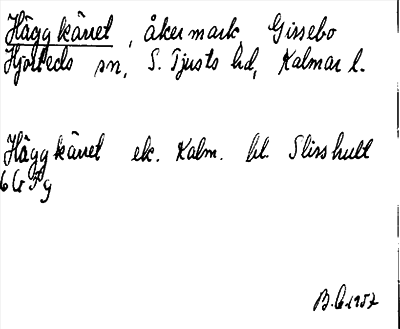 Häggkärret, åkermark, Girsebo
Hjorteds sn, S. Tjusts hd, Kalmar l.
Häggkärret ek. Kalm. bl. Slisshult
6G5g
B.G. 1957